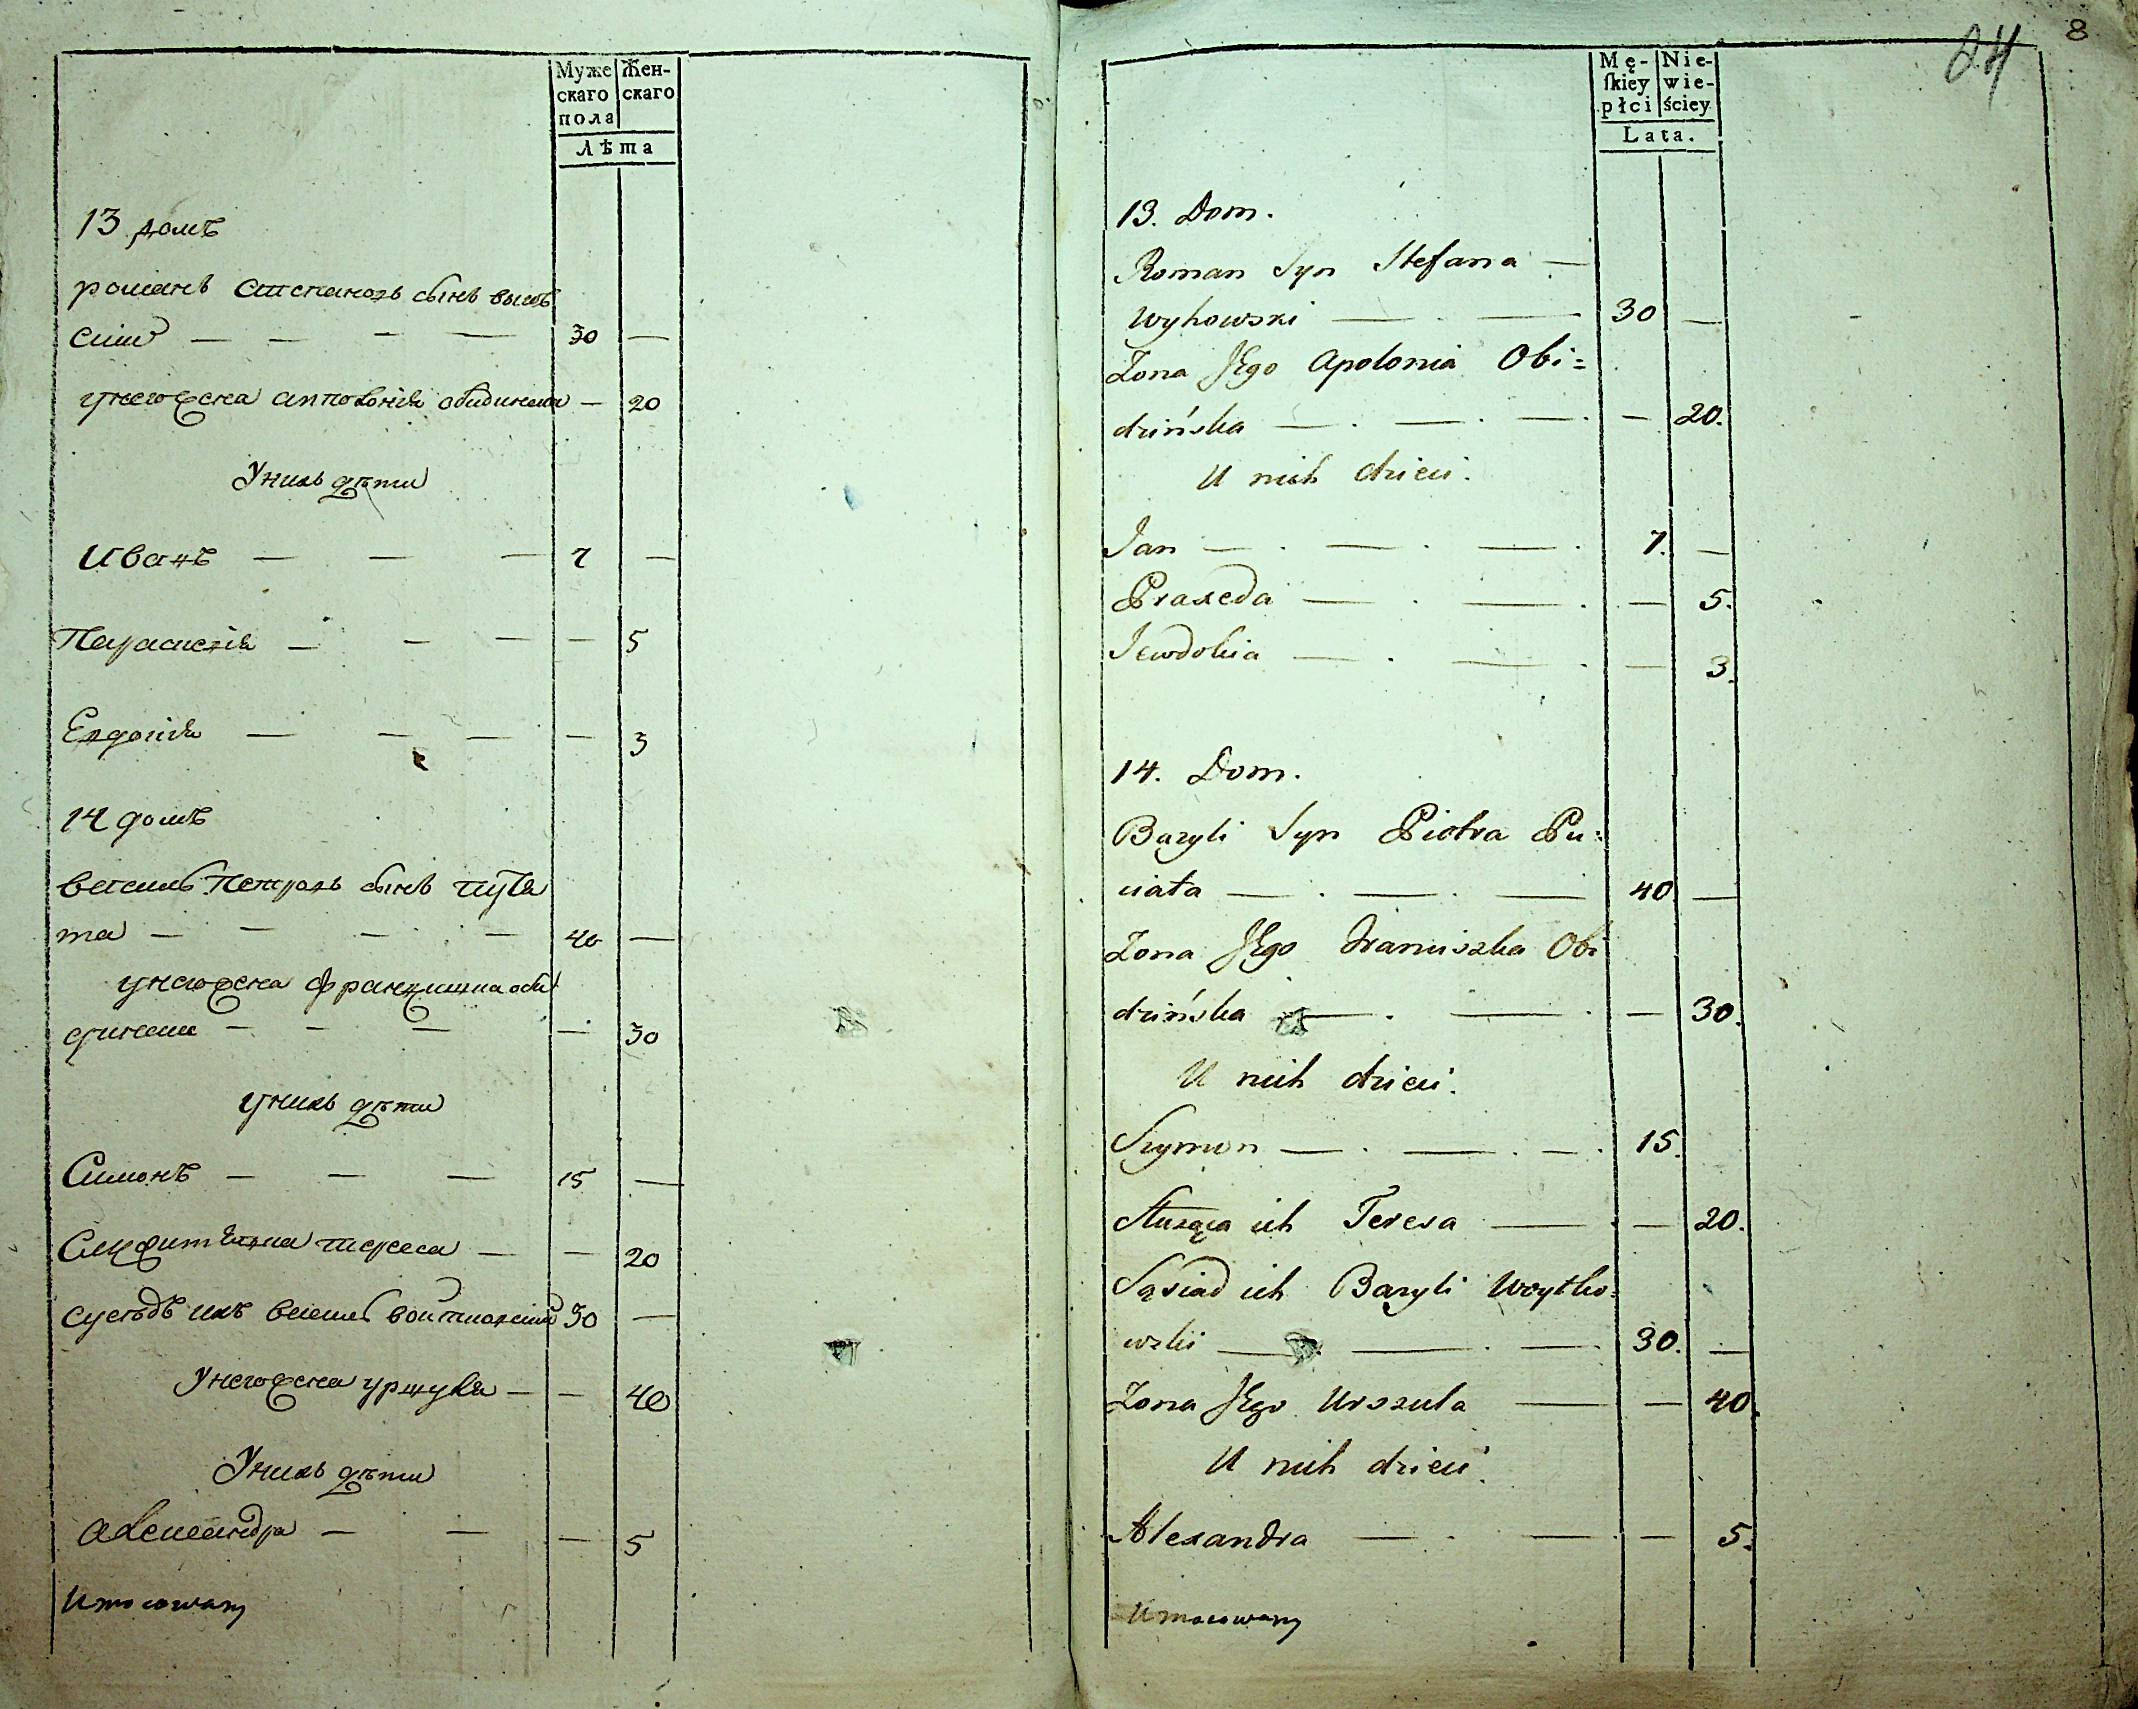 Муже
скаго
пола
Жен-
скаго
Лѣта
13 домъ
романъ степановъ сынъ выгов
скиі — — — — 30 —
унегожена апполонія обидинска — 20
Унихъ дѣти
Иванъ — — — 7 —
Параскевія — — — — 5
Евдокія — — — — 3
14 домъ
василь Петровъ сынъ путя
та — — — — 40 —
унегожена францишка оби
динска — — — — 30
унихъ дѣти
Симонъ — — — 15 —
Служит тереса — — 20
сусѣдъ ихъ василь воитковскиі 30 —
Унегожена уршуля — — 40
Унихъ дѣти
александра — — — 5
Umocowany
8
24
Mę-
ſkiey
płci
Nie-
wie-
ściey
Lata.
13. Dom.
Roman Syn Stefana —
Wyhowski — . — 30 —
Zona JEgo Apolonia Obi=
dzińska — . — . — . — 20.
U nich dzieci.
Jan — . — . — . 7. —
Praxeda — . — . — 5.
Jewdokia — . — . — 3.
14. Dom.
Bazyli Syn Piotra Pu=
ciata — . — . — 40 —
Zona JEgo Franciszka Obi
dzińska — . — . — 30.
U nich dzieci.
Szymon — . — . — . 15.
Służąca ich Teresa — . — 20.
Sąsiad ich Bazyli Woytko=
wski — . — . — 30. —
Zona JEgo Urszula — — 40.
U nich dzieci.
Alexandra — . — . — 5.
Umocowany